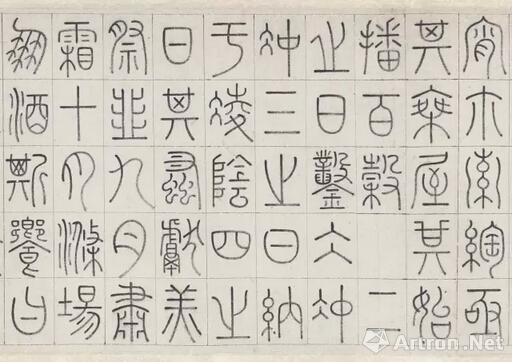 宵尒索綯亟
其乘屋其始
播百穀 二
之日鑿冰沖
沖三之日納
于凌陰四之
日其蚤獻羔
祭韭九月肅
霜十月滌場
朋酒斯饗曰
Artron.Net